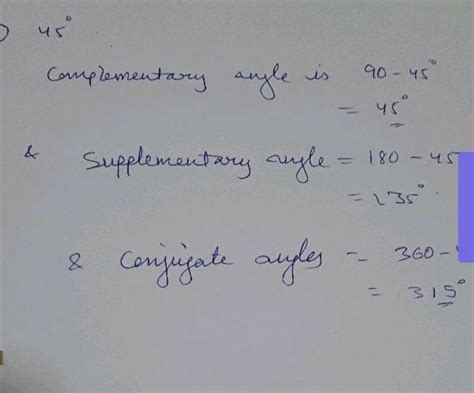 ) 45°
Complementary angle is 90 - 45°
= 45°
& Supplementary angle = 180 - 45
= 135°
& Conjugate angles = 360 -
= 315°